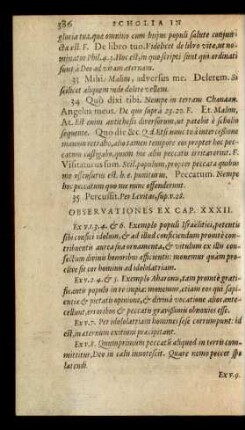 386 SCHOLIA IN
gloria tua, quæ omnino cum hujus populi salute conjun-
cta est. F. De libro tuo. Videlicet de libro vitæ, ut no-
minatur Phil. 4. 3. Hoc est in quo scripti sunt qui ordinati
sunt a Deo ad vitam æternam.
33. Mihi. Malim, adversus me. Delerem. Sc
scilicet aliquem inde delere vellem.
34. Quò dixi tibi. Nempe in terram Chanaan.
Angelus meus. De quo supra 23.23. F. Et Malim,
At. Est enim antithesis diversorum, ut patebit è scholio
sequente. Quo die &c.
manum retrahe, alio tamen tempore eos propter hoc pec-
catum castigabo, quum me alio peccato irritaverint. F.
Visitaturus sum. populum, propter peccata quibus
me offensurus est. h. e. puniturus. Peccatum. Nempe
hoc peccatum quo me nunc offenderunt.
35. Percussit. Per Levitas, sup. v. 28.
OBSERVATIONES EX CAP. XXXII.
Ex v. 1. 3. 4. & 6. Exemplo populi Israëlitici, petentis
sibi confici idolum, & ad illud conficiendum promtè con-
tribuentis aurea sua ornamenta, & vitulum ex illis con-
fectum divinis honoribus afficientis: monemur quàm pro-
clive sit cor hominis ad idololatriam.
Ex v. 2. 4. & 5. Exemplo Aharonis, tam promtè grati-
ficantis populo in re impia: monemur, etiam eos qui sapi-
entiâ & pietatis opinione, & divinâ vocatione alios ante-
cellunt, erroribus & peccatis gravissimis obnoxios esse.
Ex v. 7. Per idololatriam homines sese corrumpunt: id
est, in æternum exitium præcipitant.
Ex v. 8. Quumprimum peccatis aliquod in terris com-
mittitur, Deo in cælis innotescit. Quare nemo peccet spe
latendi.
Ex v. 9.